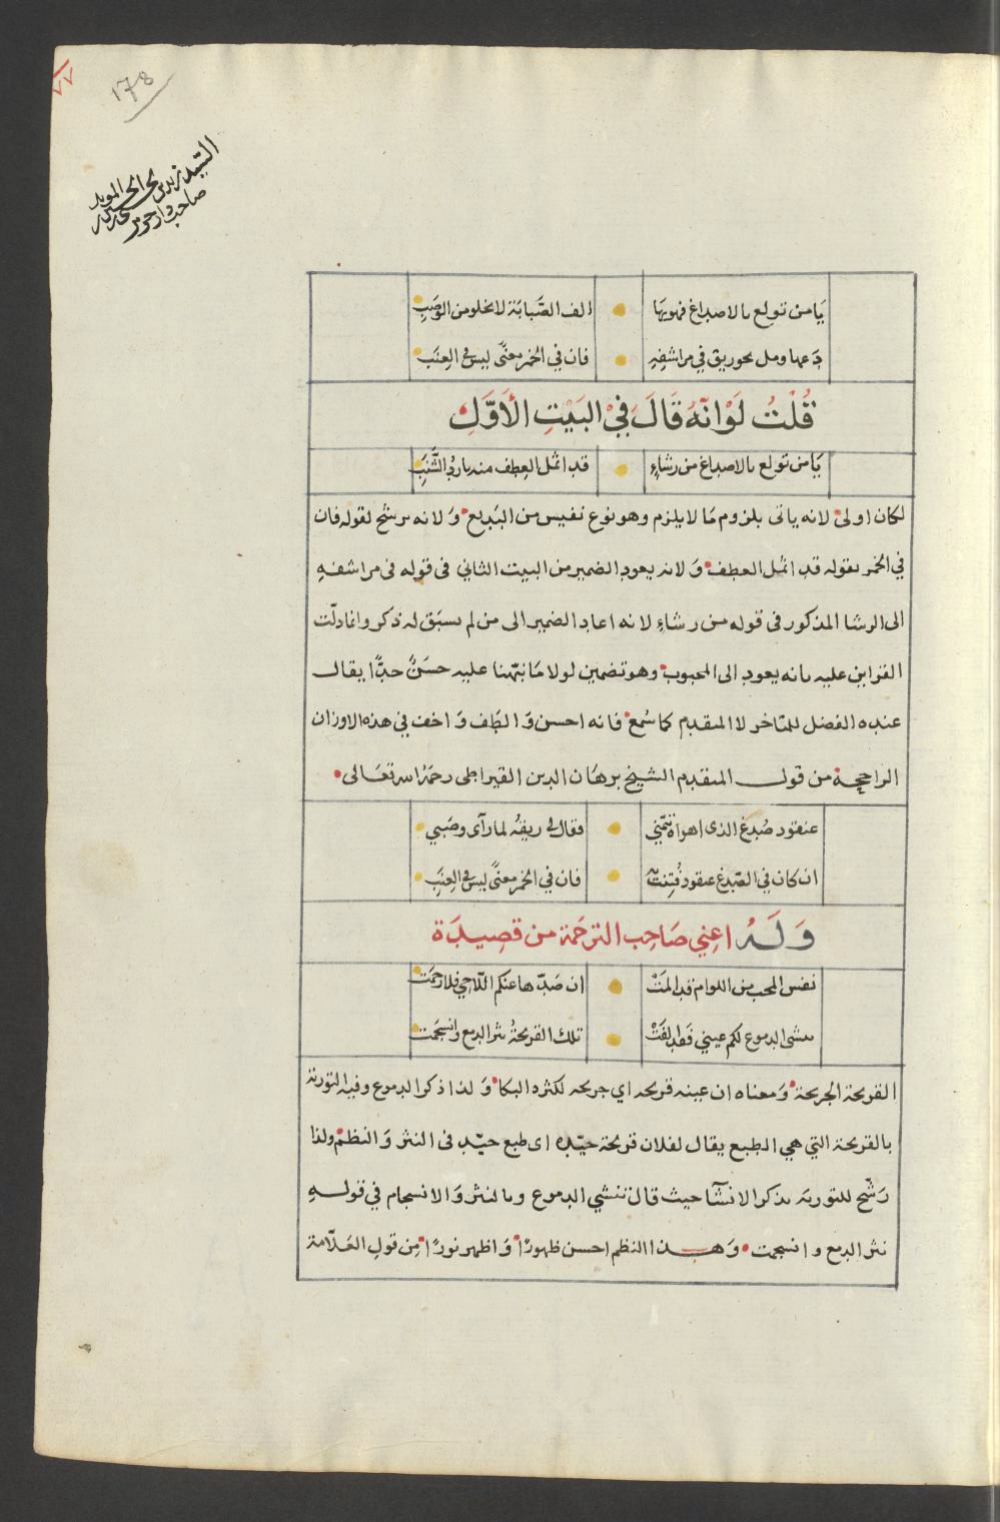 ٧٧
178
السيد زيد بن يحيى
صاحب
يَا من تولع بالاصداغ فهويها ألف الصَّبابَة لا تخلو من الوصَبِ
دَعها ومل نحو ريق في مراشفِهِ فان في الخمر معنًى ليس في العِنَب
قُلْتُ لَوْ انَّهُ قَالَ فِيْ البَيْتِ الأَوَّلِ
يَا من تولع بالاصداغ من رشاءٍ قد اثمل العِطف منه باردُ الشَّنَبِ
لكان اولى لانه ياتى بلزوم مَا لا يلزم وهو نوع نفيس من البَديع وَ لانه يرشح لقوله فان
في الخمر بقوله قد اثمل العطف وَ لانه يعود الضمير من البيت الثاني فى قوله فى مراشفهِ
الى الرشا المذكور فى قوله من رشاءٍ لانه اعاد الضمير الى من لم يسبَق له ذكر وانما دلّت
القراين عليه بانه يعود الى المحبوب وهو تضمين لولا مَا نبَّهنا عليه حسَنٌ جدًّا يقال
عنده الفضل للمتاخر لا المتقدم كما سُمع فانه احسن وَ الطَف وَ اخف في هذه الاوزان
الراجحة من قول المتقدم الشيخ برهَان الدين القيراطى رحمَهُ الله تعَالى
عنقود صُدغ الذى اهواه تيَّمني فقال لى ريقُه لما رآى وصَبي
ان كان في الصّدغ عنقود فُتِنتَ به فان في الخمر معنًى ليس في العِنَبِ
وَلَهُ اعني صَاحِب الترحَمة من قصِيدَة
نفس المحب من اللوام قد المَتْ ان صَدّها عنكم اللَّاحِي فلا رحمَت
تنشى الدموع لكم عيني فقد لفَتْ تلك القريحَةُ نثر الدمع وانسجَمت
القريحَة الجريحَة وَمعناه ان عينه قريحه اي جريحه لكثره البكا وَ لذا ذكر الدموع وفيه التورية
بالقريحَة التي هي الطبع يقال لفلان قريحَة جيّده اى طبع جيّد فى النثر وَ النظم ولذا
رَشّح للتوريَه بذكر الانشَا حيث قال تنشي الدموع وبالنثر وَ الانسجام في قولهِ
نثر الدمع وانسجمت وَهذا النظم احسن ظهورًا وَ اظهر نورًا مِن قولِ العَلَّامَة